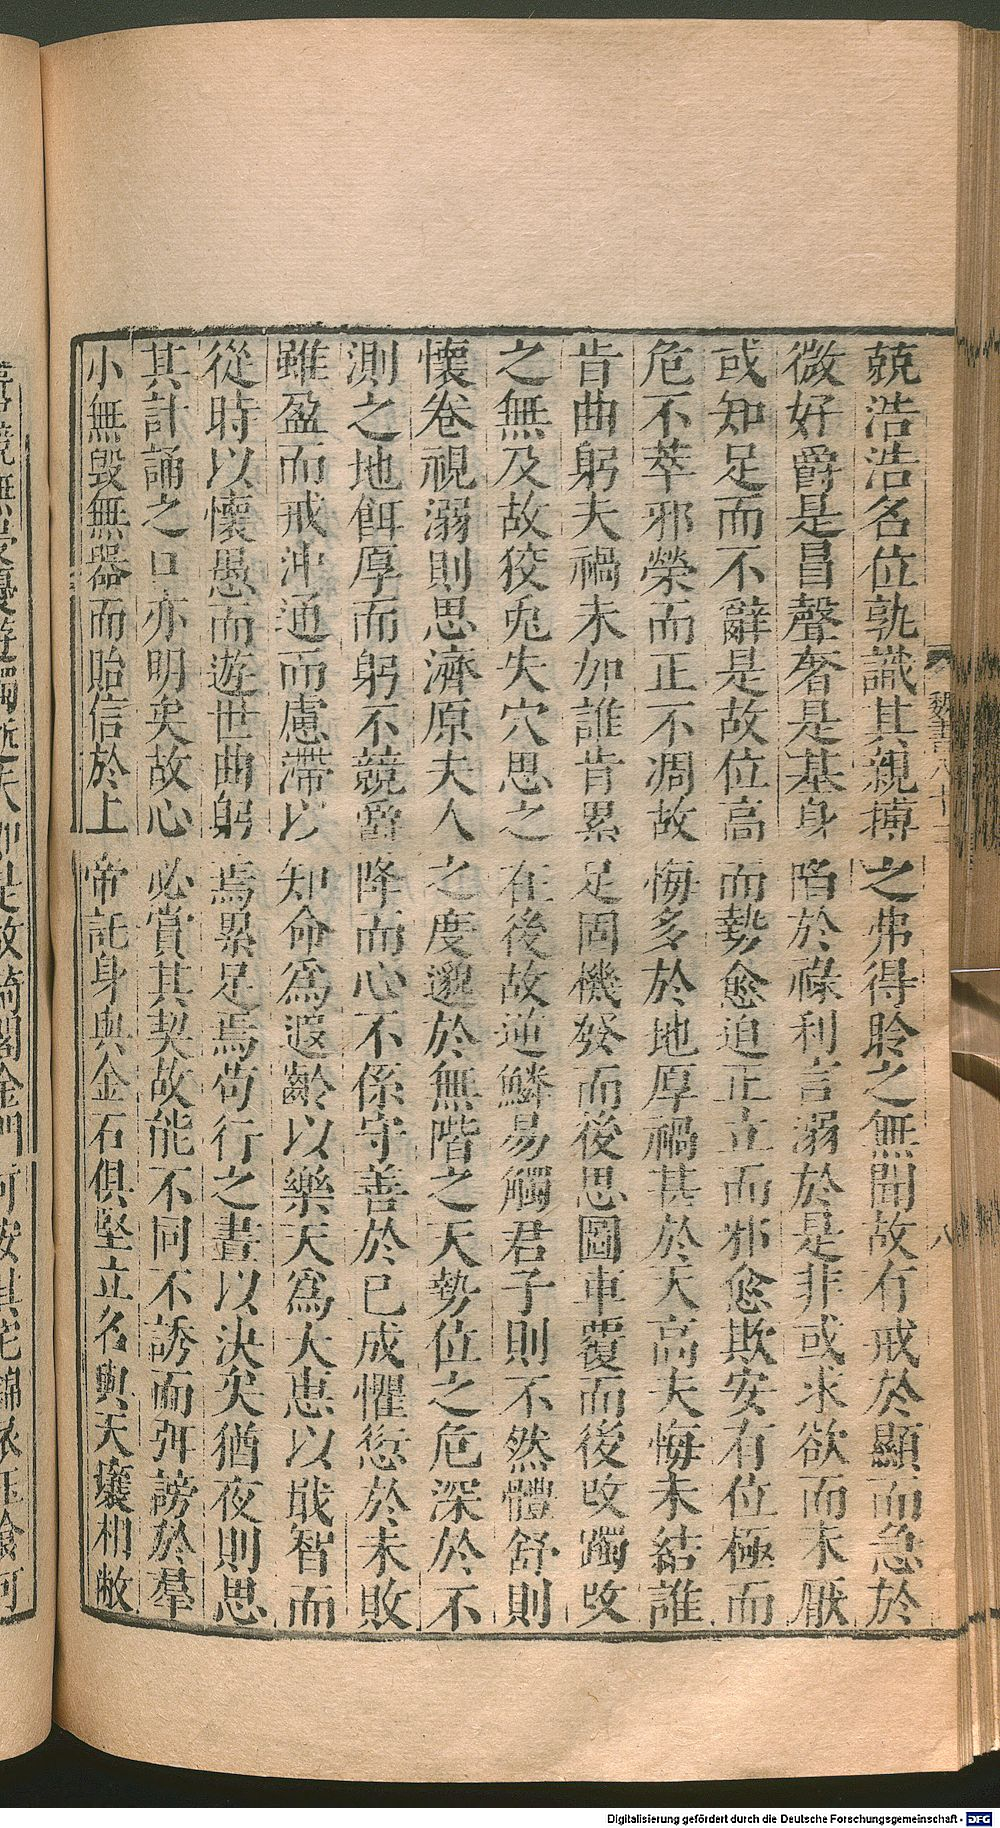 魏書八十二
八
兢浩浩名位孰識其親搏之弗得聆之無聞故有戒於顯而急於
微好爵是冒聲奢是基身陷於祿利言溺於是非或求欲而未厭
或知足而不辭是故位高而勢愈迫正立而邪愈欺安有位極而
危不萃邪榮而正不凋故悔多於地厚禍甚於天高夫悔未結誰
肯曲躬夫禍未加誰肯累足固機發而後思圖車覆而後改躅改
之無及故狡兔失穴思之在後故逆鱗易觸君子則不然體舒則
懷卷視溺則思濟原夫人之度邈於無階之天勢位之危深於不
測之地餌厚而躬不競爵降而心不係守善於已成懼愆於未敗
雖盈而戒沖通而慮滯以知命爲遐齡以樂天爲大惠以戢智而
從時以懷愚而遊世曲躬焉累足焉苟行之晝以決矣猶夜則思
其計誦之口亦明矣故心必賞其契故能不同不誘而弭謗於羣
小無毀無器而貽信於上帝託身與金石俱堅立名與天壤相敝
競無侵優遊獨逝夫如是故綺閣金門可安其宅錦衣玉食可
Digitalisierung gefördert durch die Deutsche Forschungsgemeinschaft - DFG